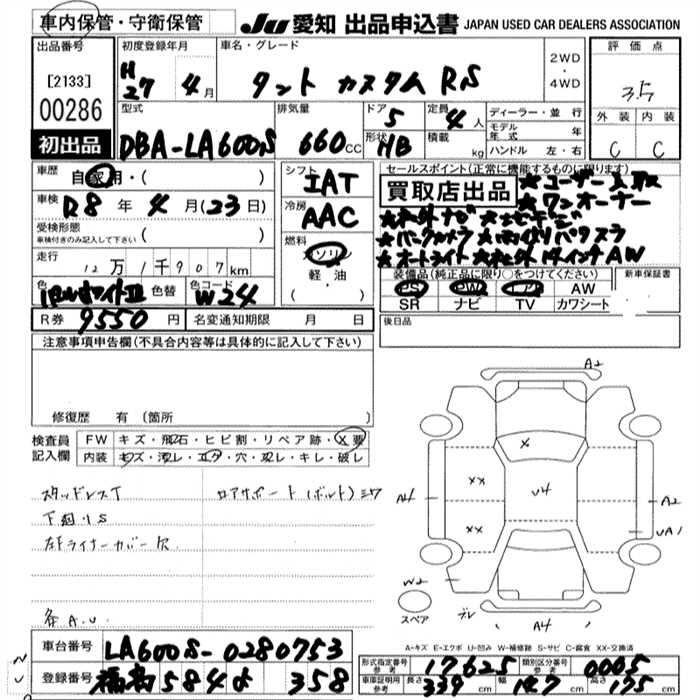 車内保管・守衛保管
JU 愛知 出品申込書 JAPAN USED CAR DEALERS ASSOCIATION
出品番号
[2133]
00286
初出品
初度登録年月
H27 年 4月
車名・グレード
タント カスタム RS
2WD
・
4WD
評価点
3.5
外装 内装
C C
型式
DBA-LA600S
排気量
660cc
ドア
5
形状
HB
定員
4人
積載
kg
ディーラー・並行
モデル年式 年
ハンドル 左・右
車歴
自家用・( )
車検
R8年 4月(23日)
受検形態
車検付きのみ記入して下さい ( )
走行
12万1千907km
色
パールホワイトIII
色替
色コード
W24
シフト
IAT
冷房
AAC
燃料
ガソリン
軽・油
( ・ )
セールスポイント(正常に機能するものに限ります)
買取店出品
★ユーザー買取
★ワンオーナー
★社外ナビ ★ナビ
★バックカメラ ★両側パワスラ
★オートライト ★社外14インチAW
装備品(純正品に限り○をつけてください)
PS PW エアB AW
SR ナビ TV カワシート
新車保証書
R券 9550円
名変通知期限 月 日
後日品
注意事項申告欄(不具合内容等は具体的に記入して下さい)
修復歴 有(箇所
検査員記入欄
FW キズ・飛石・ヒビ割・リペア跡・X要
内装 キズ・汚レ・コゲ・穴・スレ・キレ・破レ
スタッドレスT
下廻りS
左Fライナーカバー欠
ロアサポート(ボルト)ミワ
各A.U.
A2
X
XX
U4
XX
A4
A2
UA1
W2
スペア
ブレ
A4
A-キズ E-エクボ U-凹み W-補修跡 S-サビ C-腐食 XX-交換済
車台番号
LA600S-0280753
登録番号
584 358
形式指定番号
参考
17625
類別区分番号
参考
0005
車庫証明用
参考
長さ 339cm 幅 147cm 高さ 175cm